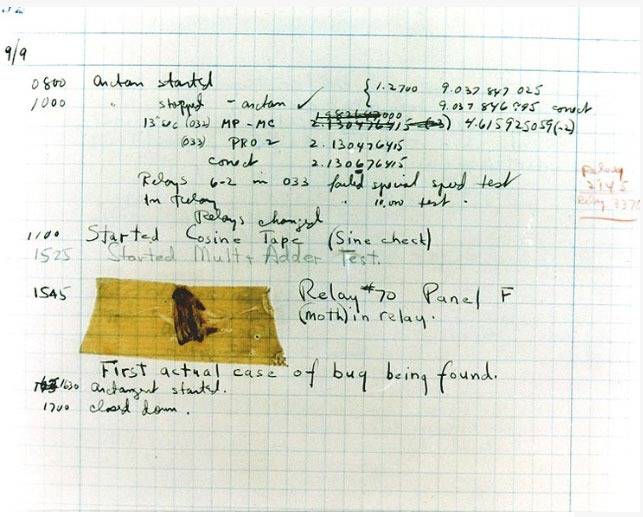 9/9
0800 arctan started { 1.2700 9.037 847 025
1000 " stopped - arctan ✓ 9.037 846 995 correct
13"uc (032) MP - MC 2.130476415 4.615925059(-2)
(033) PRO 2 2.130476415
correct 2.130676415
Relays 6-2 in 033 failed special speed test
In Relay " 10,000 test .
Relays changed
Relay
2145
Relay 3370
1100 Started Cosine Tape (Sine check)
1525 Started Mult + Adder Test.
1545 Relay #70 Panel F
(moth) in relay.
First actual case of bug being found.
1630 arctangent started.
1700 closed down.